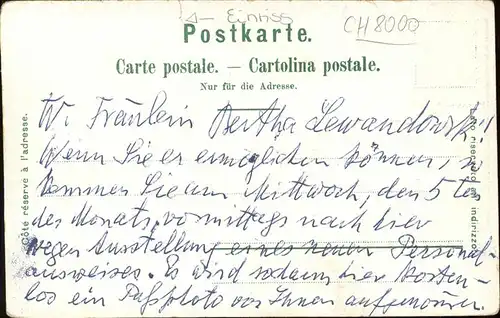 Einriss
CH8000
Postkarte.
Carte postale. — Cartolina postale.
Nur für die Adresse.
Fräulein Bertha Lewandowski!
Wenn Sie es ermöglichen können, so
kommen Sie am Mittwoch, den 5 ten
des Monats, vormittags nach hier
wegen Ausstellung eines neuen Personal-
ausweises. Es wird sodann hier kosten-
los ein Paßphoto von Ihnen aufgenommen.
Côté réservé à l'adresse.
Lato riservato all' indirizzo.